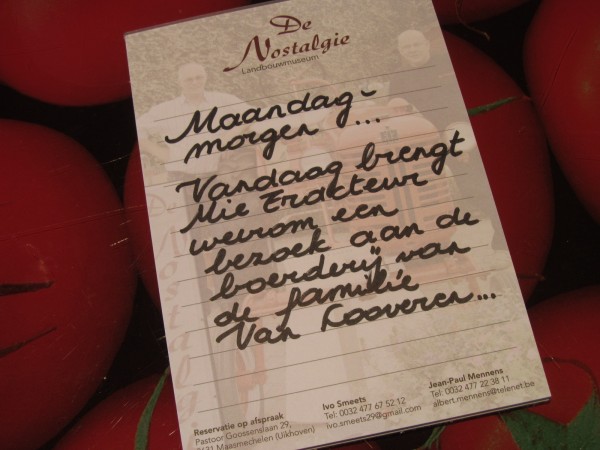 De
Nostalgie
Landbouwmuseum
Maandag-
morgen ...
Vandaag brengt
Mie Tracteur
weirom een
bezoek aan de
boerderij van
de familie
Van Looveren...
De Nostalgie
Reservatie op afspraak
Pastoor Goossenslaan 29,
3631 Maasmechelen (Uikhoven)
Ivo Smeets
Tel: 0032 477 67 52 12
ivo.smeets29@gmail.com
Jean-Paul Mennens
Tel: 0032 477 22 38 11
albert.mennens@telenet.be